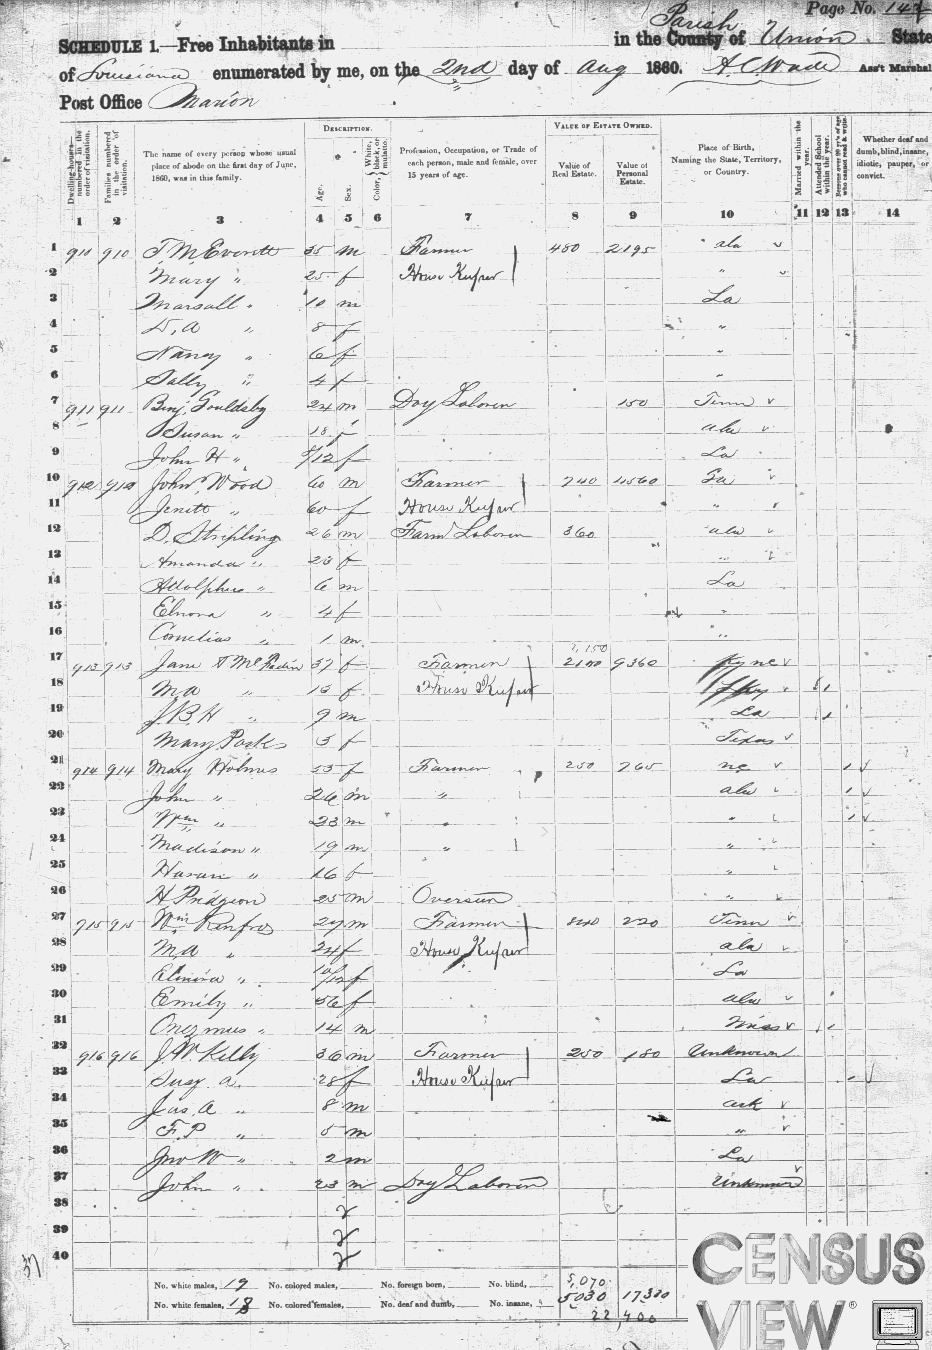 Page No. 142
SCHEDULE 1.—Free Inhabitants in in the County of Parish Union State
of Louisiana enumerated by me, on the 2nd day of Aug 1860. A. C. Wade Ass't Marshal
Post Office Marion
Dwelling-houses— numbered in the order of visitation.
Families numbered in the order of visitation.
The name of every person whose usual place of abode on the first day of June, 1860, was in this family.
DESCRIPTION.
Age.
Sex.
Color, White, black, or mulatto.
Profession, Occupation, or Trade of each person, male and female, over 15 years of age.
VALUE OF ESTATE OWNED.
Value of Real Estate.
Value of Personal Estate.
Place of Birth, Naming the State, Territory, or Country.
Married within the year.
Attended School within the year.
Persons over 20 y'rs of age who cannot read & write.
Whether deaf and dumb, blind, insane, idiotic, pauper, or convict.
1 2 3 4 5 6 7 8 9 10 11 12 13 14
1 910 910 T. M. Everett 35 m Farmer 480 2195 ala
2 Mary " 25 f House Keeper "
3 Marsall " 10 m La
4 D. A " 8 f "
5 Nancy " 6 f "
6 Sally " 4 f "
7 911 911 Benj. Gouldsby 24 m Day Laborer 150 Tenn
8 Susan " 18 f ala
9 John H " 5/12 f La
10 912 912 John Wood 60 m Farmer 240 4560 Ga
11 " 60 f House Keeper "
12 D. Stripling 26 m Farm Laborer 360 ala
13 Amanda " 23 f "
14 Adolphus " 6 m La
15 Elnora " 4 f "
16 Cornelius " 1 m "
17 913 913 Jane 37 f Farmer 2100 9360
18 M. A " f House Keeper
19 J. B. H " 9 m La
20 Mary Parks 3 f Texas
21 914 914 Mary Holmes 53 f Farmer 250 765 nc
22 John " 26 m " ala
23 Wm " 23 m "
24 Madison " 19 m " "
25 " 16 f "
26 H Pridgeon 25 m Overseer "
27 915 915 Wm Renfroe 29 m Farmer 840 220 Tenn
28 M. A " 24 f House Keeper ala
29 Elmira " 10/12 f La
30 Emily " 56 f ala
31 " 14 m Miss
32 916 916 J. W Kelly 36 m Farmer 250 180 Unknown
33 Susy. a. 28 f House Keeper La
34 Jas. A " 8 m ark
35 F. P " 5 m "
36 Jno W " 2 m La
37 John " 23 m Day Laborer Unknown
38
39
40
No. white males, 19 No. colored males, No. foreign born, No. blind, 5,070
No. white females, 18 No. colored females, No. deaf and dumb, No. insane, 5030 17330
22,400
CENSUS
VIEW®